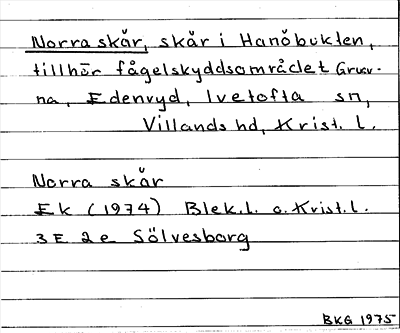 Norra skär, skär i Hanöbukten,
tillhör fågelskyddsområdet Gruv-
na, Edenryd, Ivetofta sn,
Villands hd, Krist. l.
Norra skär
Ek (1974) Blek.l. o. Krist.l.
3E 2e Sölvesborg
BKG 1975